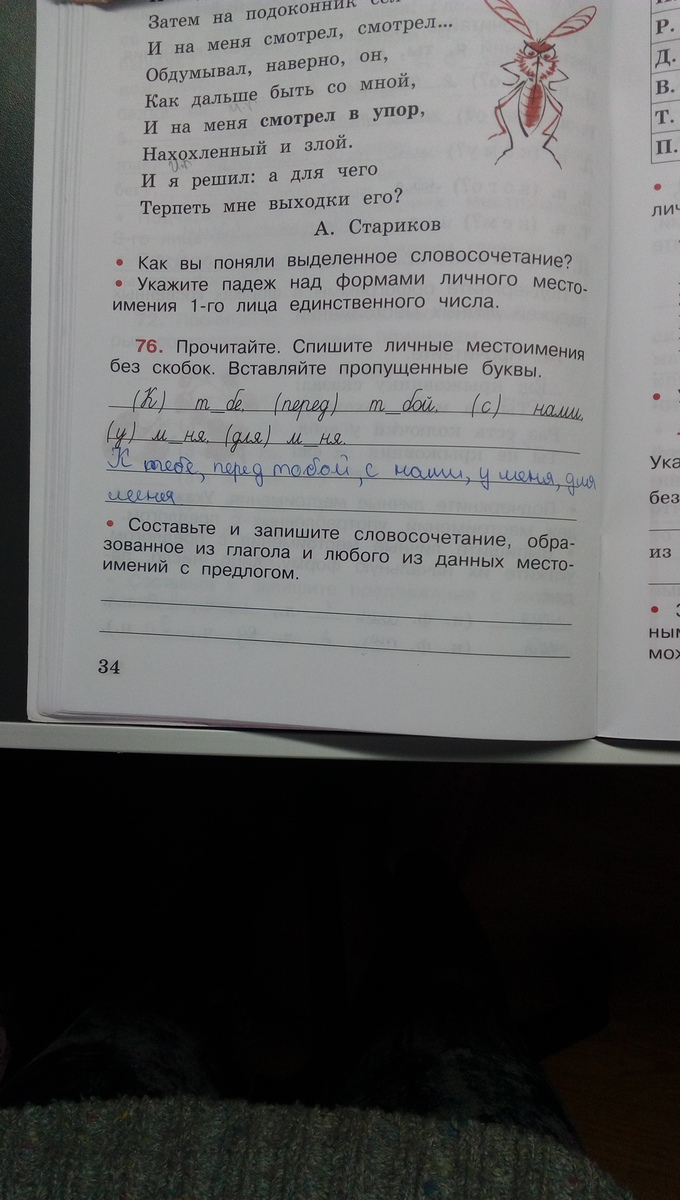 Затем на подоконник
И на меня смотрел, смотрел...
Обдумывал, наверно, он,
Как дальше быть со мной,
И на меня смотрел в упор,
Нахохленный и злой.
И я решил: а для чего
Терпеть мне выходки его?
А. Стариков
• Как вы поняли выделенное словосочетание?
• Укажите падеж над формами личного место-
имения 1-го лица единственного числа.
76. Прочитайте. Спишите личные местоимения
без скобок. Вставляйте пропущенные буквы.
(К) т_бе. (перед) т_бой. (с) нами.
(у) м_ня. (для) м_ня.
К тебе, перед тобой, с нами, у меня, для
меня
• Составьте и запишите словосочетание, обра-
зованное из глагола и любого из данных место-
имений с предлогом.
34
Р.
Д.
В.
Т.
П.
•
лич
•
Ука
без
из
•
ным
мож